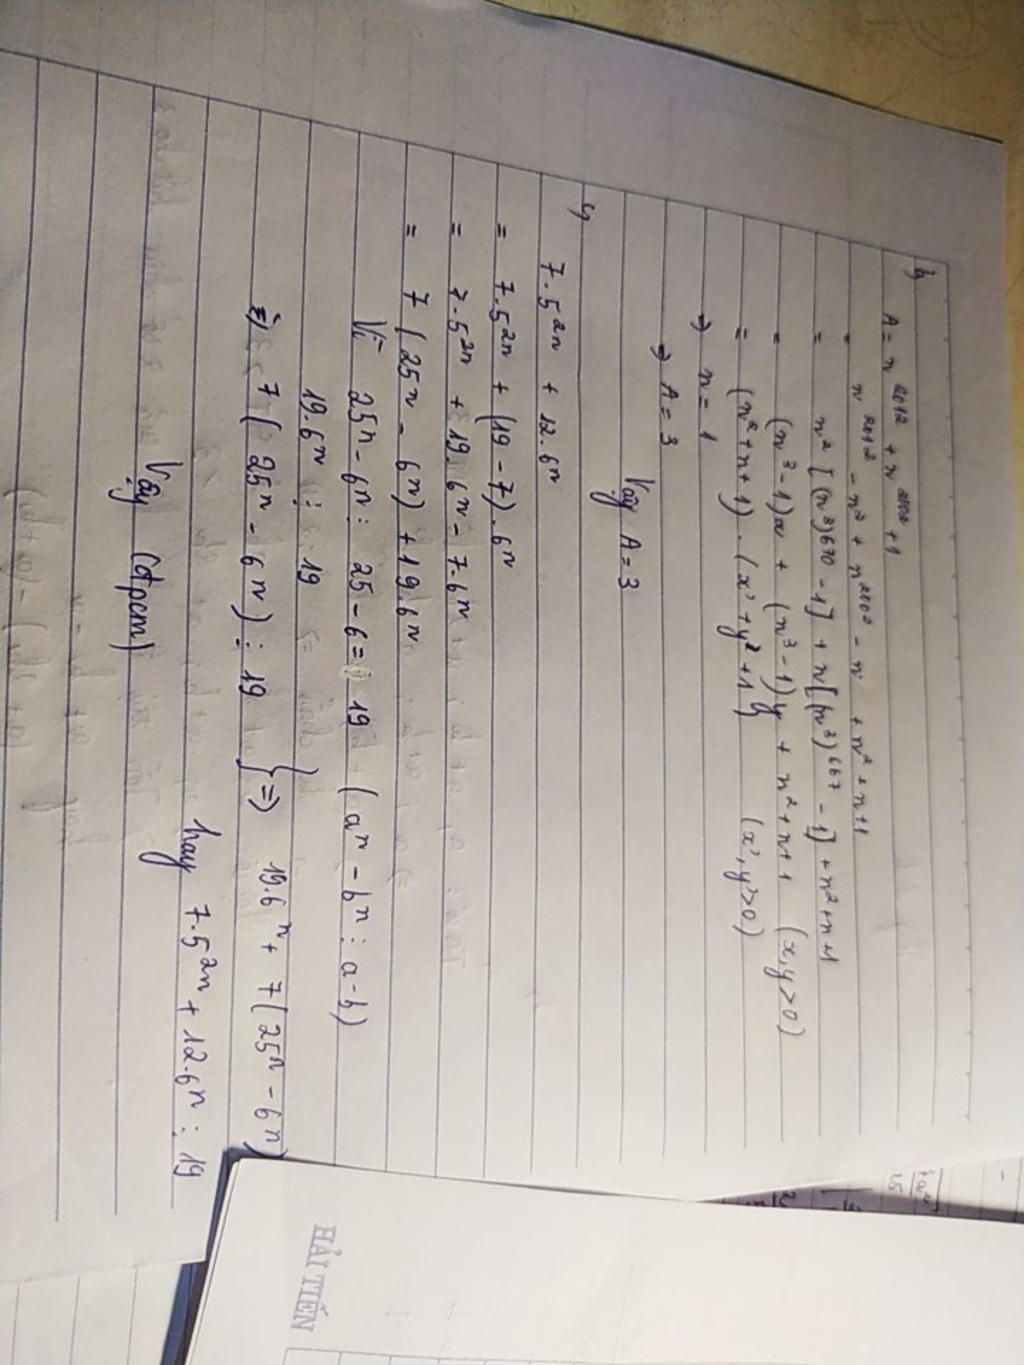 b, A = n^2012 + n^2002 + 1
= n^2012 - n^2 + n^2002 - n + n^2 + n + 1
= n^2 [(n^3)^670 - 1] + n[(n^3)^667 - 1] + n^2 + n + 1
= (n^3 - 1)x + (n^3 - 1)y + n^2 + n + 1 (x, y > 0)
= (n^2 + n + 1) . (x' + y' + 1) (x', y' > 0)
⇒ n = 1
⇒ A = 3
Vậy A = 3
7.5^2n + 12.6^n
= 7.5^2n + (19 - 7).6^n
= 7.5^2n + 19.6^n - 7.6^n
= 7 (25^n - 6^n) + 19.6^n
Vì 25^n - 6^n ⋮ 25 - 6 = 19 (a^n - b^n ⋮ a - b)
19.6^n ⋮ 19
⇒ 7 (25^n - 6^n) ⋮ 19 } ⇒ 19.6^n + 7 (25^n - 6^n)
hay 7.5^2n + 12.6^n ⋮ 19
Vậy (đpcm)
HẢI TIẾN